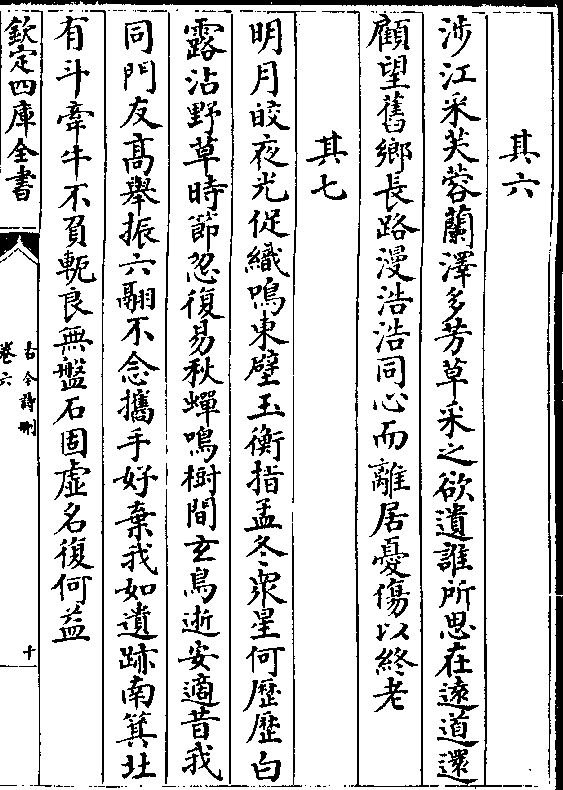 其六
涉江采芙蓉蘭澤多芳草采之欲遺誰所思在逺道還
顧望舊鄉長路漫浩浩同心而離居憂傷以終老
其七
明月皎夜光促織鳴東壁玉衡指孟冬衆星何歴歴白
露沾野草時節忽復易秋蟬鳴樹間玄鳥逝安適昔我
同門友髙舉振六翮不念攜手好棄我如遺跡南箕北
有斗牽牛不負軛良無盤石固虛名復何益
欽定四庫全書
古今詩刪
卷六
十